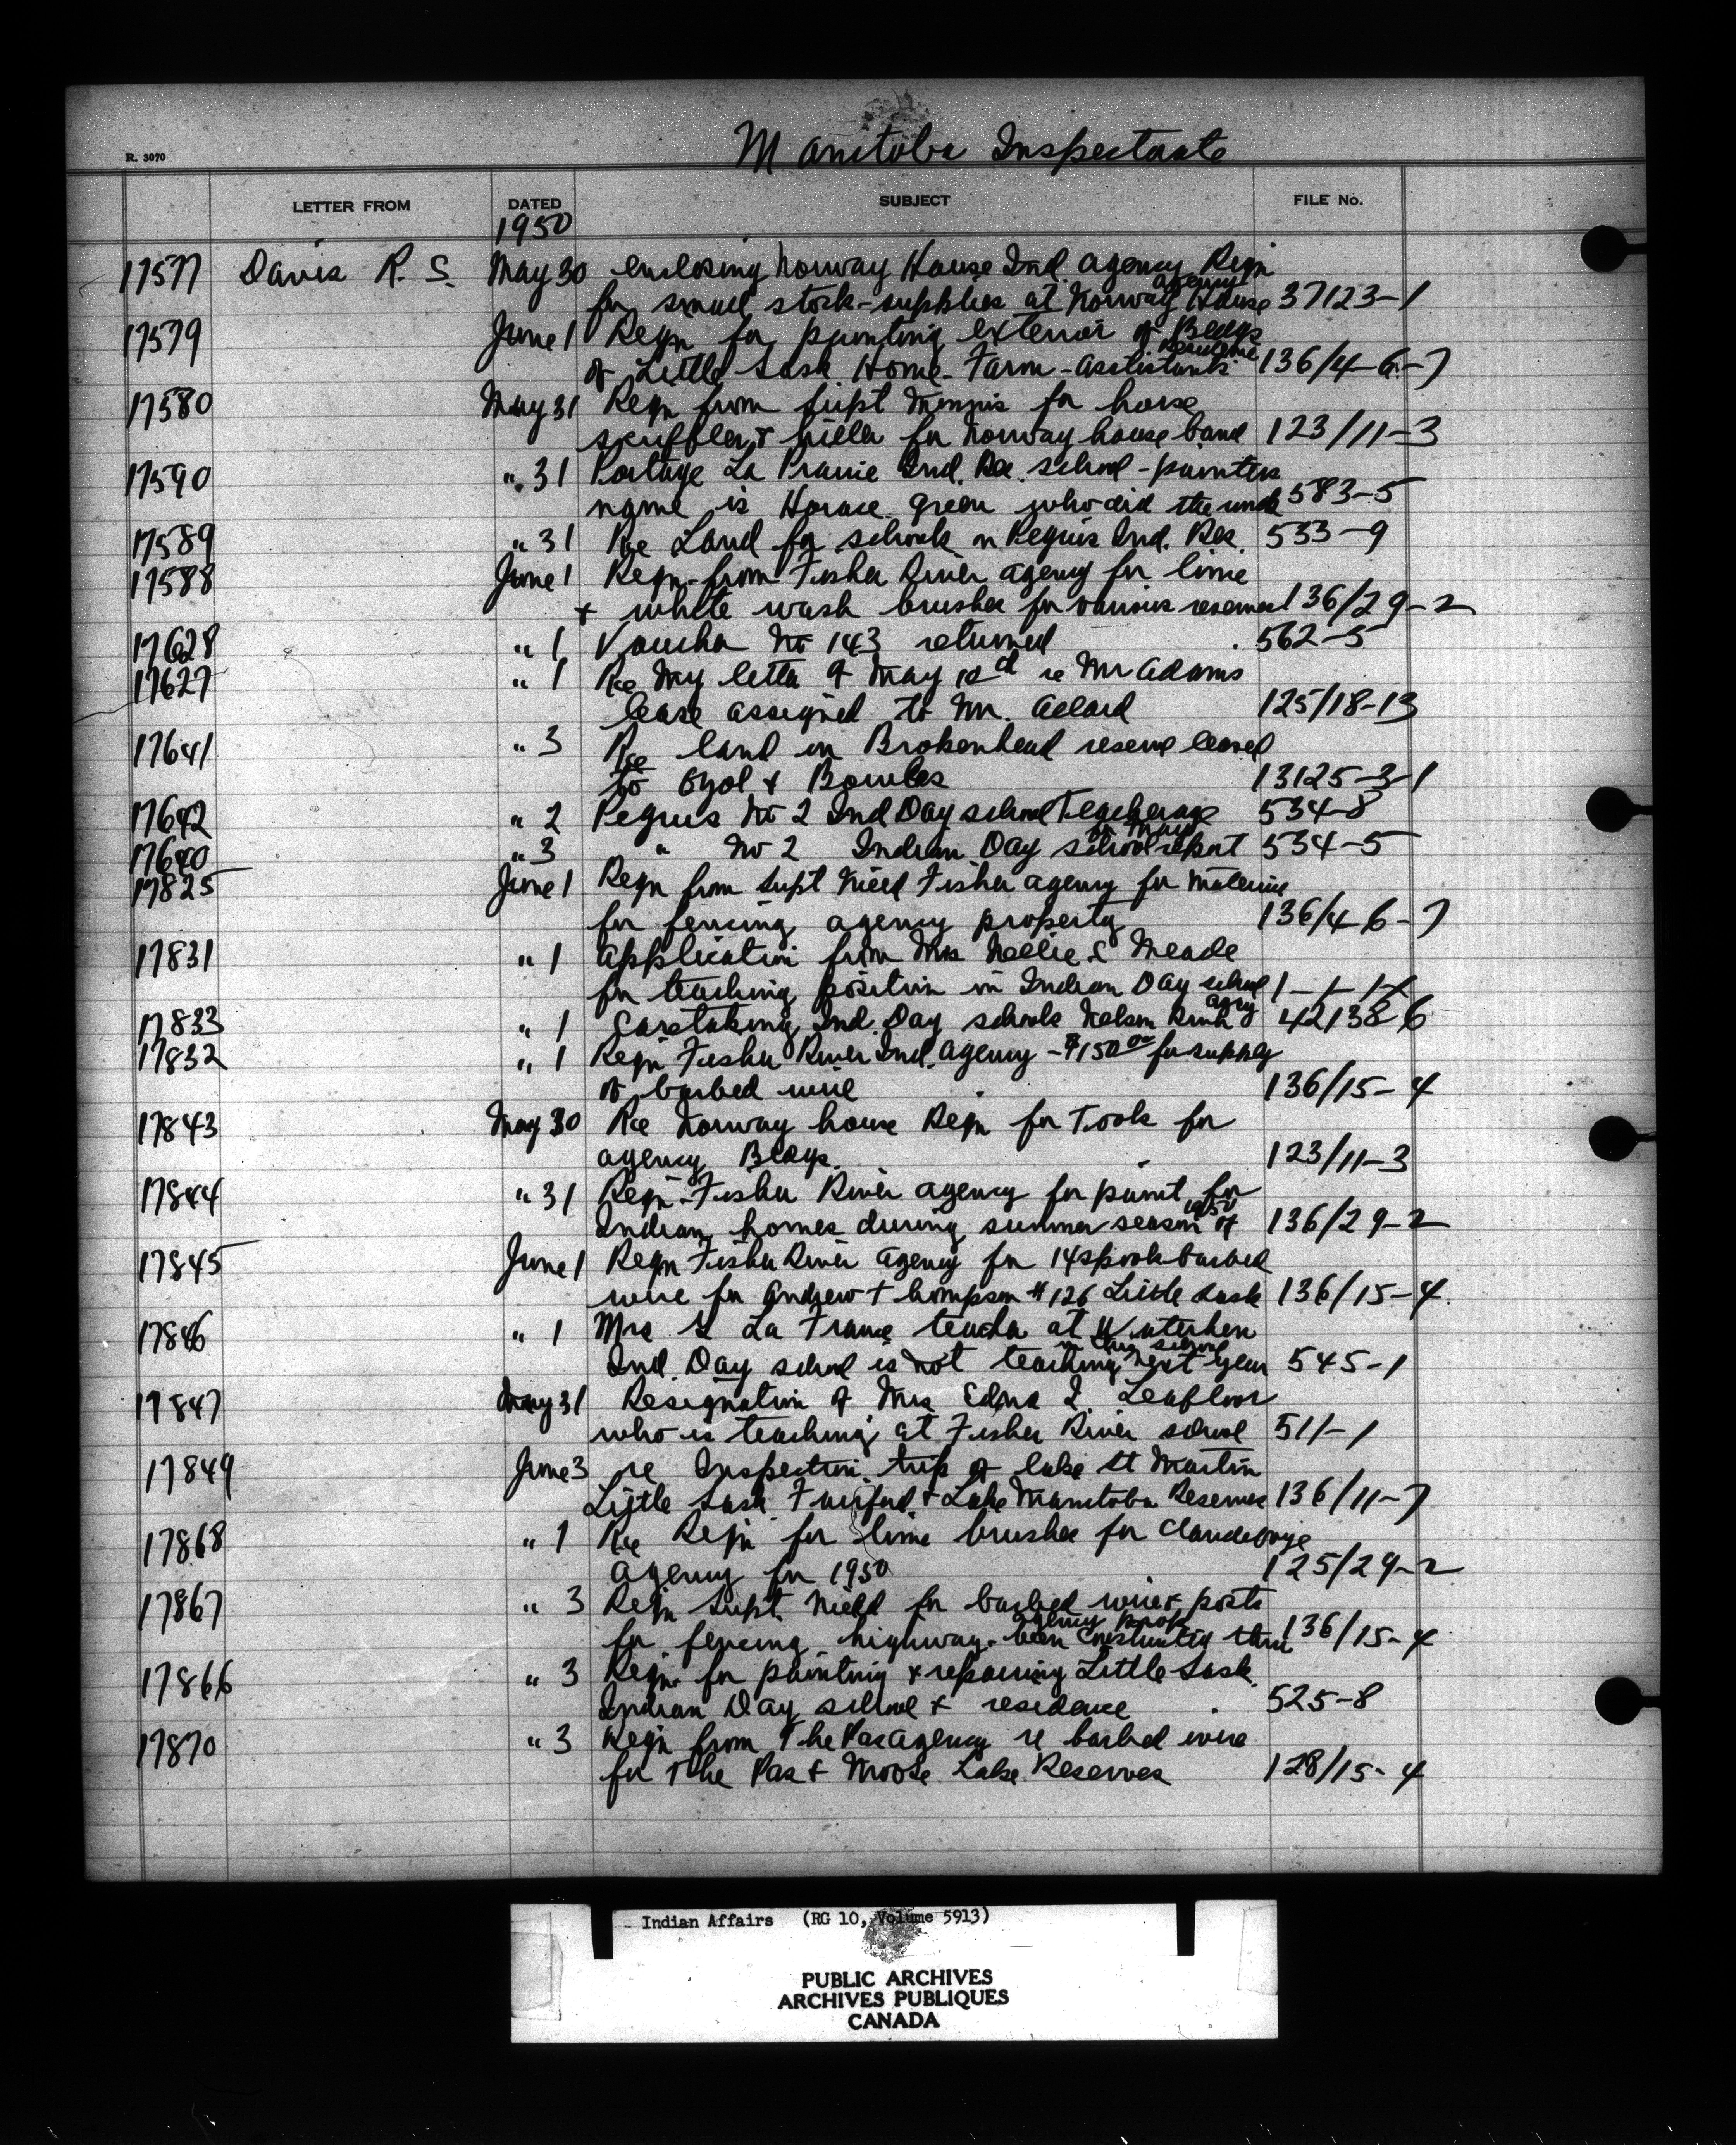 Manitoba Inspectorate
R. 3070
LETTER FROM DATED SUBJECT FILE No.
1950
17577 Davis R. S. May 30 enclosing Norway House Ind agency Reqn
for small stock-supplies at Norway House agency 37123-1
17579 June 1 Reqn for painting exterior of Bldgs
of Little Sask Home-Farm-assistants residence 136/4-6-7
17580 May 31 Reqn from Supt for horse
scuffler & hiller for Norway house band 123/11-3
17590 " 31 Portage La Prairie Ind. Res. school - painters
name is Horace Green who did the work 583-5
17589 " 31 Re Land for schools on Peguis Ind. Res. 533-9
17588 June 1 Reqn-from Fisher River agency for lime
& white wash brushes for various reserves 136/29-2
17628 " 1 Voucher No 143 returned 562-5
17627 " 1 Re my letter of May re Mr Adams
lease assigned to Mr. Allard 125/18-13
17641 " 3 Re land on Brokenhead reserve leased
to & Bowles 13125-3-1
17642 " 2 Peguis No 2 Ind Day school Teacherage 534-8
17640 " 3 " No 2 Indian Day school report for May 534-5
17825 June 1 Reqn from Supt Nield Fisher agency for material
for fencing agency property 136/4-6-7
17831 " 1 application from Mrs Nellie E Meade
for teaching position in Indian Day school 1-1-1
17833 " 1 Caretaking Ind. Day schools Nelson River agcy 42138-6
17832 " 1 Reqn Fisher River Ind. Agency - $150 00 for supply
of barbed wire 136/15-4
17843 May 30 Re Norway house Reqn for Tools for
agency Bldgs. 123/11-3
17844 " 31 Reqn-Fisher River agency for paint for
Indian homes during summer season of 1950 136/29-2
17845 June 1 Reqn Fisher River Agency for 14 spools barbed
wire for Andrew Thompson #126 Little Sask 136/15-4.
17846 " 1 Mrs La France teacher at Waterhen
Ind. Day school is not teaching in this school next year 545-1
17847 May 31 Resignation of Mrs Edna I. Leafloor
who is teaching at Fisher River school 511-1
17849 June 3 re Inspection trip of lake St Martin
Little Sask Fairford & Lake Manitoba Reserves 136/11-7
17868 " 1 Re Reqn for lime brushes for Clandeboye
Agency for 1950 125/29-2
17867 " 3 Reqn Supt. Nield for barbed wire & posts
for fencing highway-been constructed thru agency prop 136/15-4
17866 " 3 Reqn. for painting & repairing Little Sask.
Indian Day school & residence 525-8
17870 " 3 Reqn from The Pas agency re barbed wire
for The Pas & Moose Lake Reserves 128/15-4
Indian Affairs (RG 10, Volume 5913)
PUBLIC ARCHIVES
ARCHIVES PUBLIQUES
CANADA